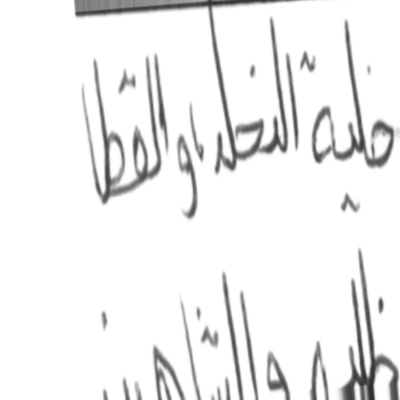 خلية النحل، والقطا
والشاهين